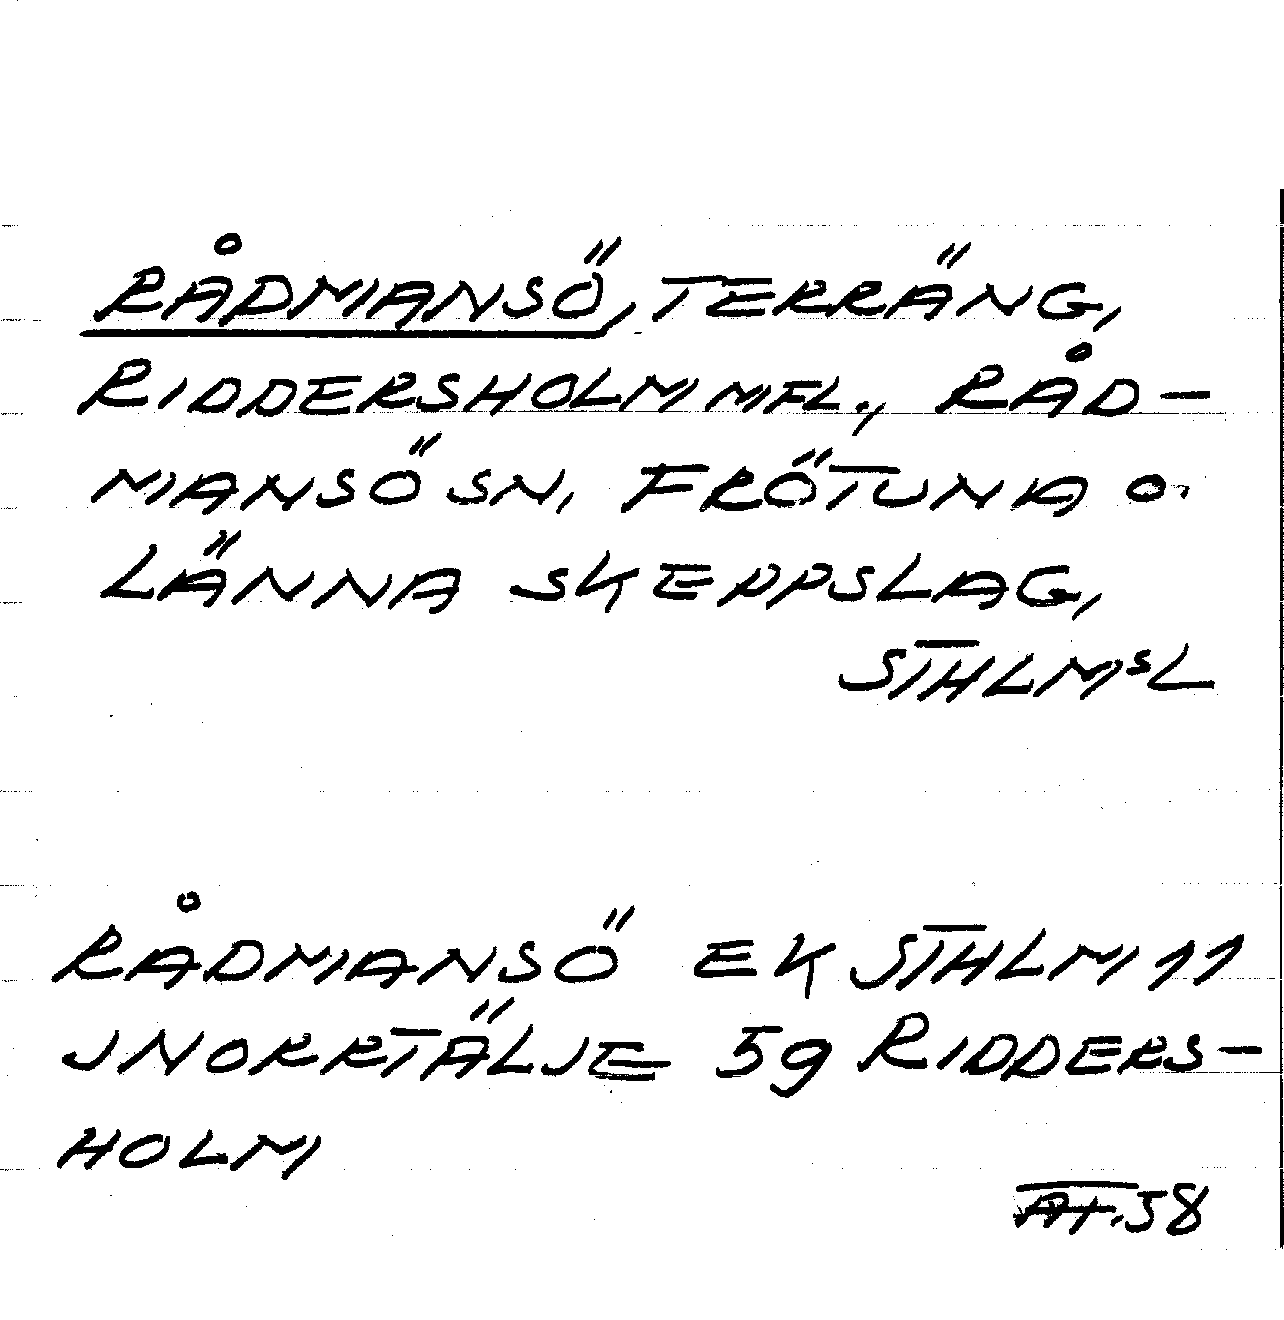 RÅDMANSÖ, TERRÄNG,
RIDDERSHOLM MFL., RÅD-
MANSÖ SN, FRÖTUNA O.
LÄNNA SKEPPSLAG,
STHLMSL
RÅDMANSÖ EK STHLM 11
JNORRTÄLJE 59 RIDDERS-
HOLM
58